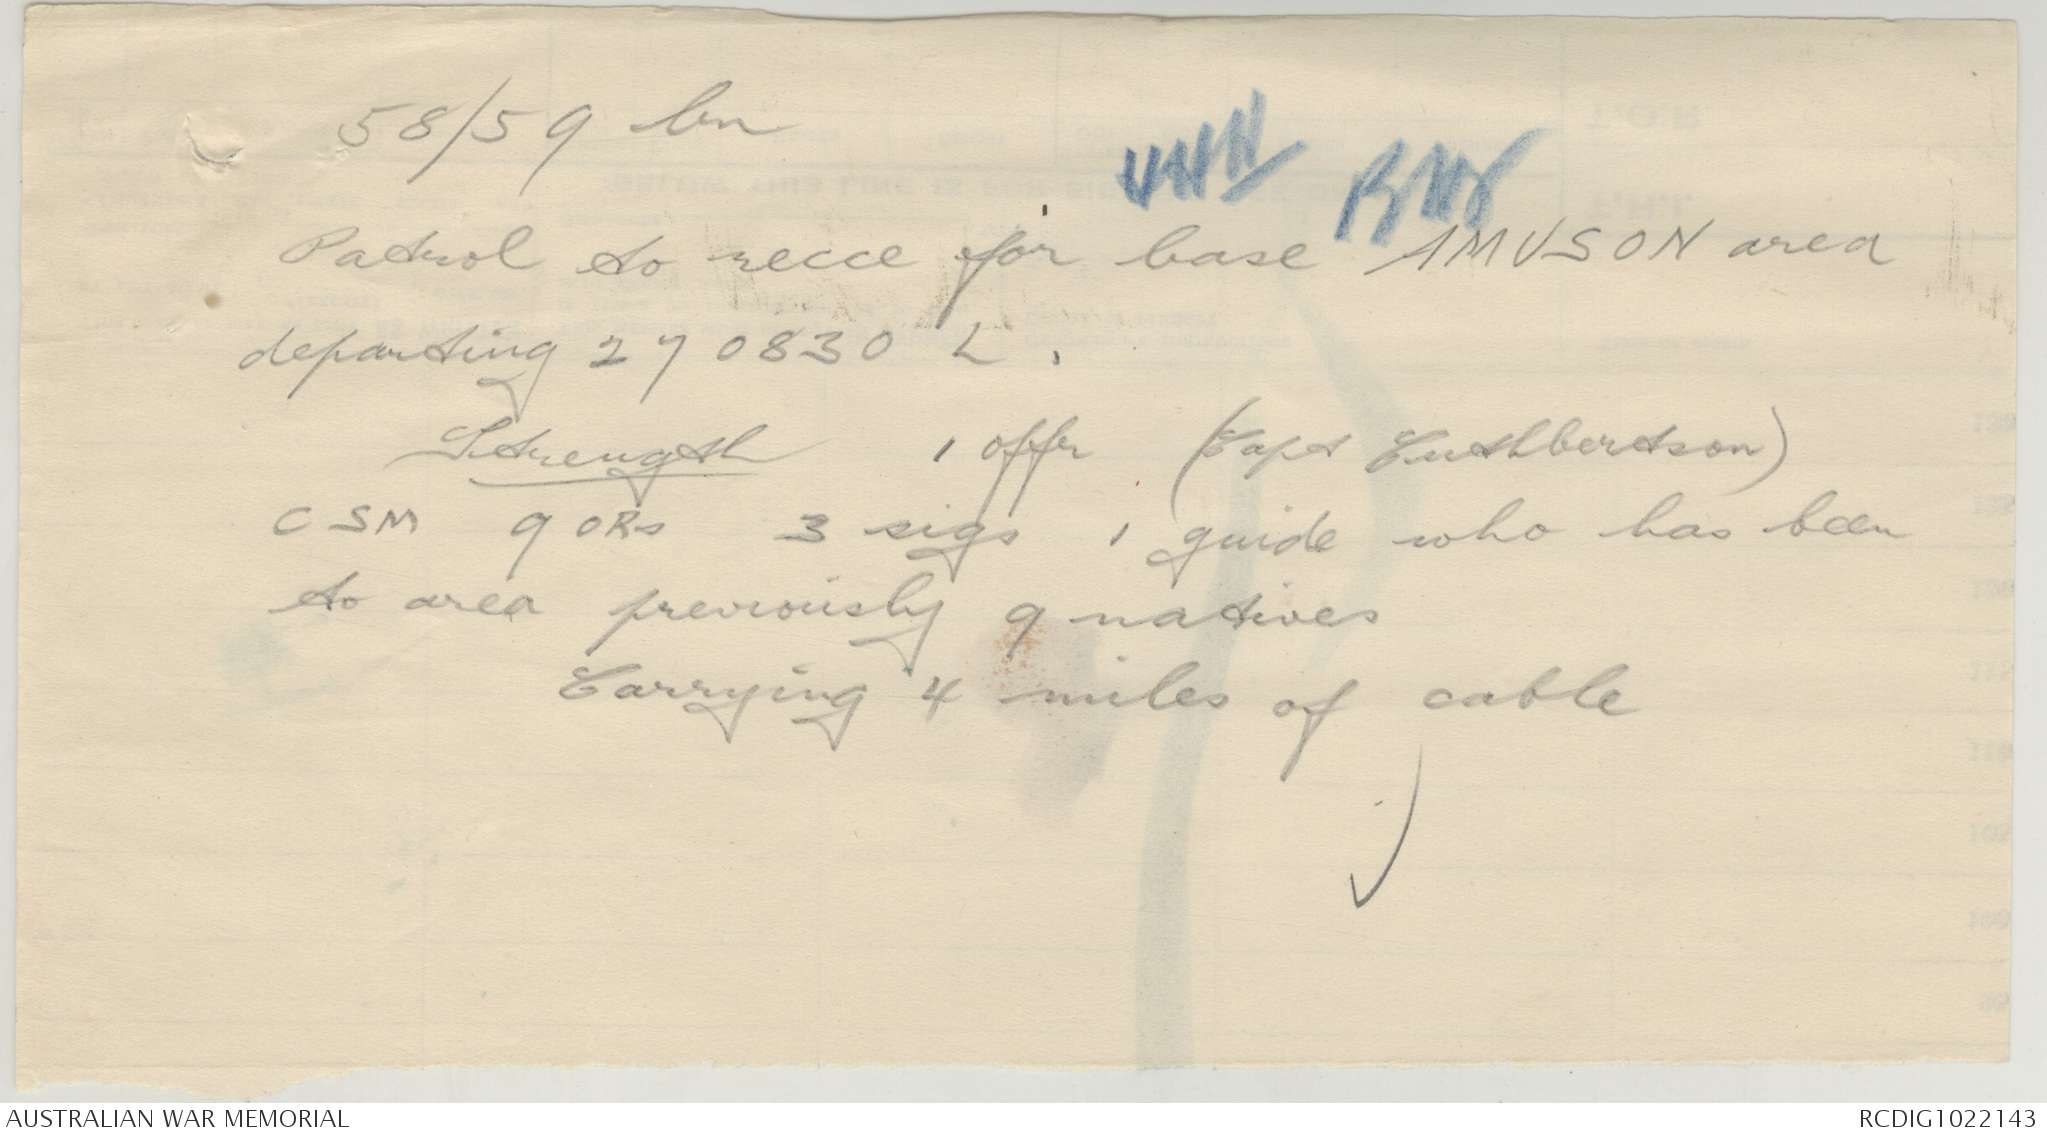 58/59 bn
Patrol to recce for base AMUSON area
departing 270830 L.
Strength 1 offr (Capt Cuthbertson)
CSM 9 ORs 3 sigs 1 guide who has been
to area previously 9 natives
Carrying 4 miles of cable
AUSTRALIAN WAR MEMORIAL
RCDIG1022143